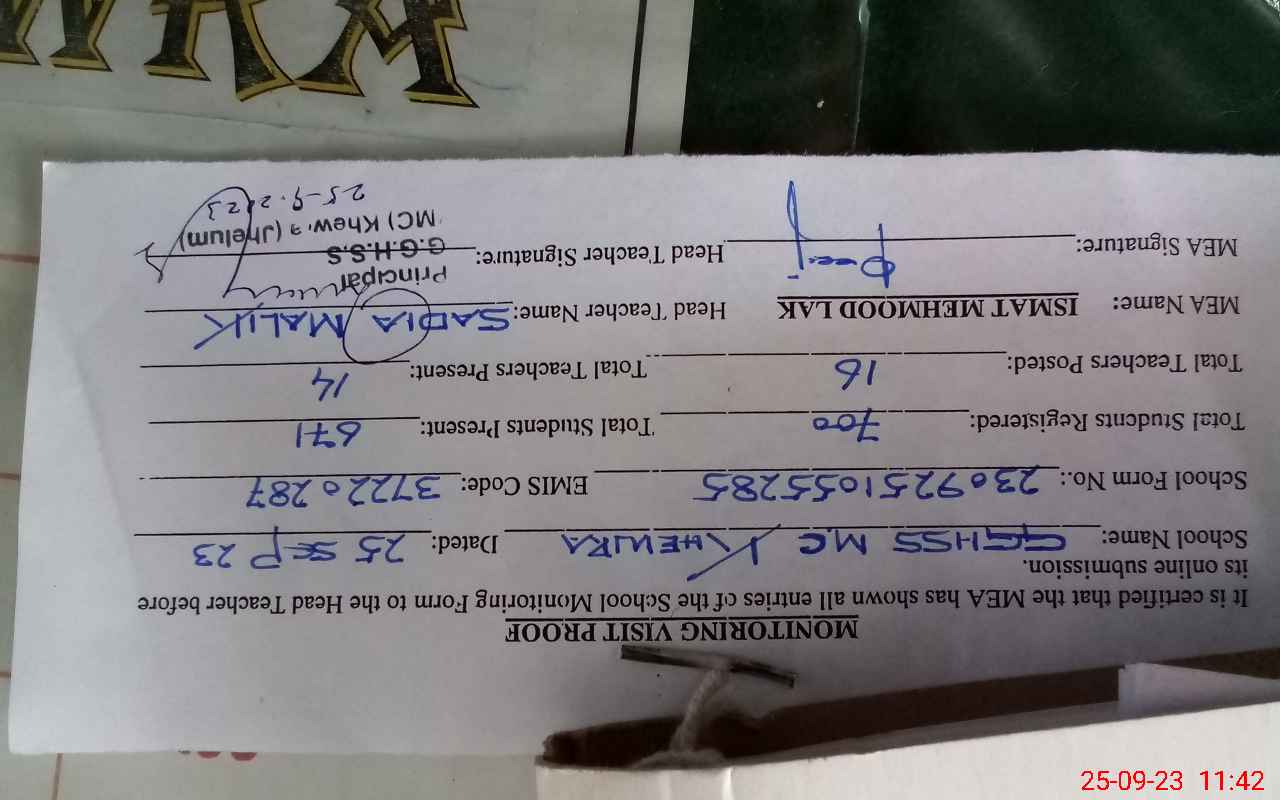 MONITORING VISIT PROOF
It is certified that the MEA has shown all entries of the School Monitoring Form to the Head Teacher before
its online submission.
School Name: GGHSS MC KHEWRA Dated: 25 SEP 23
School Form No.: 2309251055285 EMIS Code: 37220287
Total Students Registered: 700 Total Students Present: 671
Total Teachers Posted: 16 Total Teachers Present: 14
MEA Name: ISMAT MEHMOOD LAK Head Teacher Name: SADIA MALIK
MEA Signature: Head Teacher Signature:
Principal
G.G.H.S.S
MC) Khewra (Jhelum)
25-9-2023
25-09-23 11:42